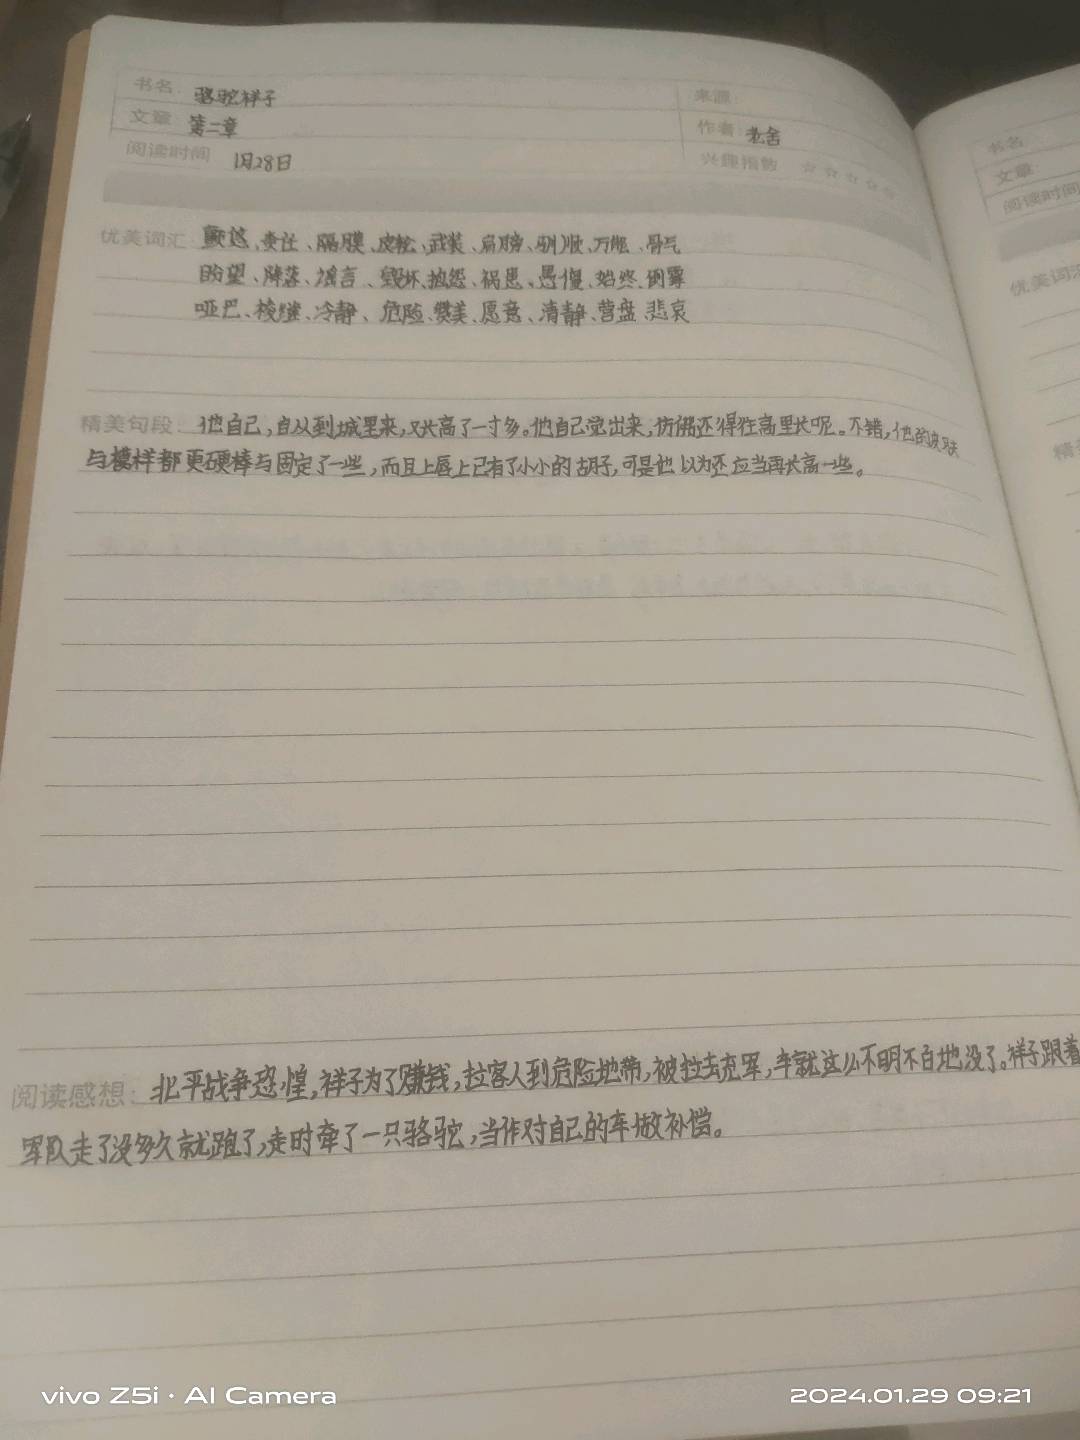 书名: 骆驼祥子
来源:
文章: 第二章
作者: 老舍
阅读时间 1月28日
兴趣指数 ☆☆☆☆☆
优美词汇: 责任、隔膜、皮松、武装、肩膀、驯顺、万能、骨气
盼望、降落、谣言、毁坏、抱怨、祸患、愚傻、始终、倒霉
哑巴、棱缝、冷静、危险、赞美、愿意、清静、营盘、悲哀
精美句段: 他自己,自从到城里来,又长高了一寸多。他自己觉出来,仿佛还得往高里长呢。不错,他的皮肤
与模样都更硬棒与固定了一些,而且上唇上已有了小小的胡子,可是他以为还应当再长高一些。
阅读感想: 北平战争恐惶,祥子为了赚钱,拉客人到危险地带,被拉去充军,车就这么不明不白地没了。祥子跟着
军队走了没多久就跑了,走时牵了一只骆驼,当作对自己的车做补偿。
书名
文章
阅读时间
优美词汇
精
vivo Z5i · AI Camera
2024.01.29 09:21